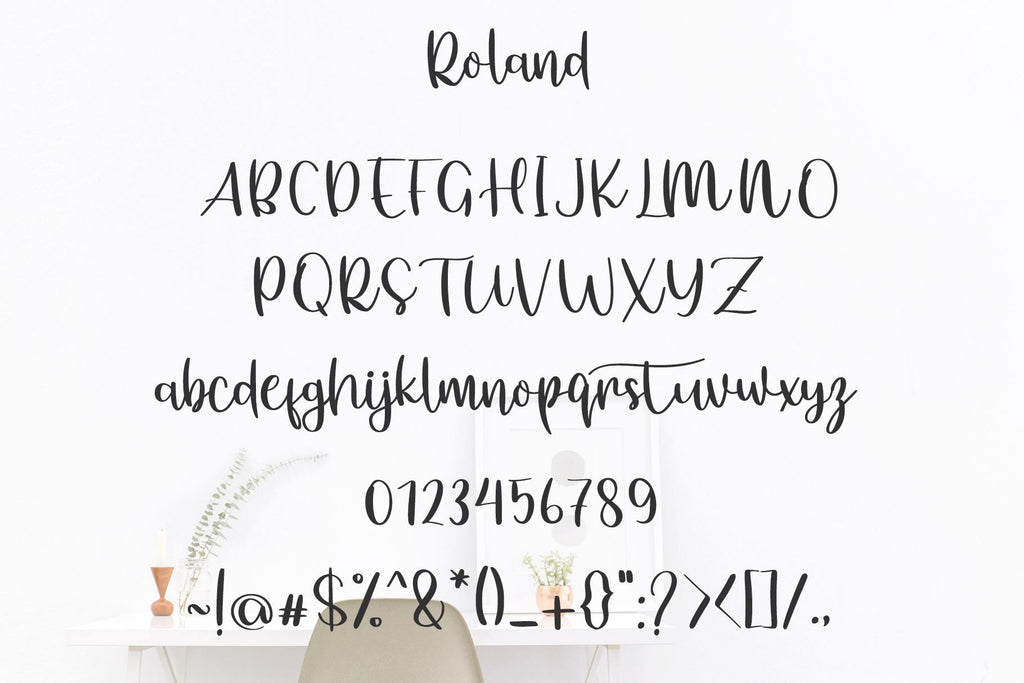 Roland
ABCDEFGHIJKLMNO
PQRSTUVWXYZ
abcdefghijklmnopqrstuvwxyz
0123456789
~!@#$%^&*()_+{}":?><[]/.,